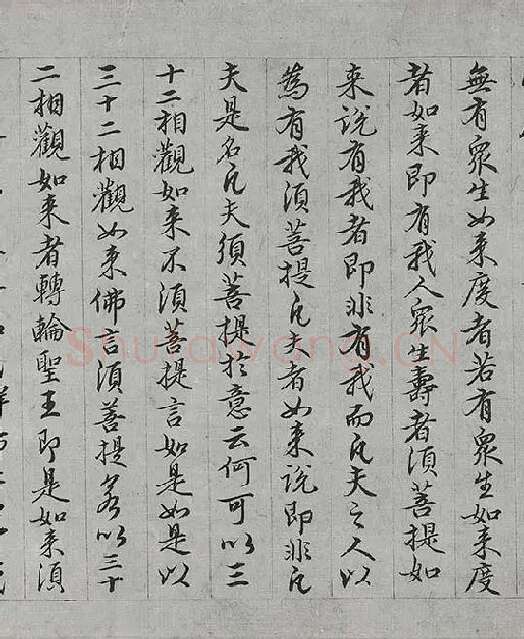 無有眾生如來度者若有眾生如來度
者如來即有我人眾生壽者須菩提如
來說有我者即非有我而凡夫之人以
為有我須菩提凡夫者如來說即非凡
夫是名凡夫須菩提於意云何可以三
十二相觀如來不須菩提言如是如是以
三十二相觀如來佛言須菩提若以三十
二相觀如來者轉輪聖王即是如來須
Shufawang.CN